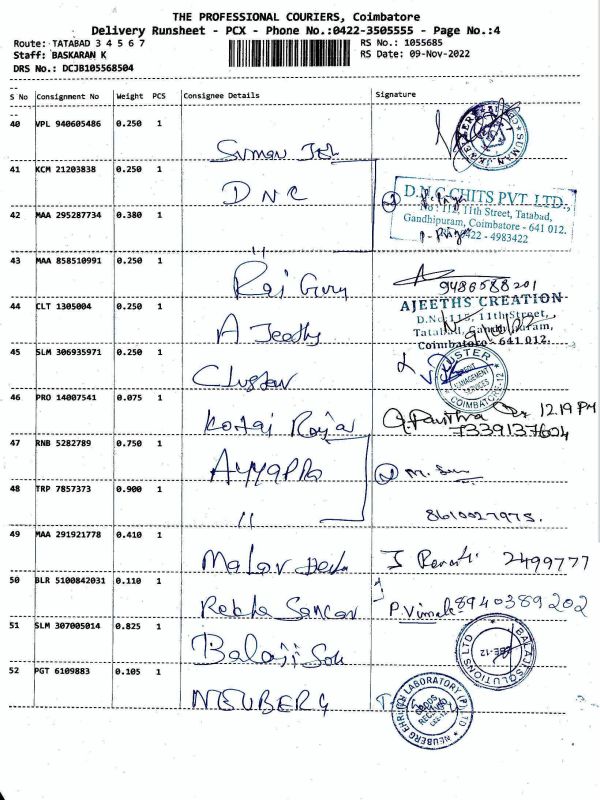 THE PROFESSIONAL COURIERS, Coimbatore
Delivery Runsheet - PCX - Phone No.:0422-3505555 - Page No.:4
Route: TATABAD 3 4 5 6 7 RS No.: 1055685
Staff: BASKARAN K RS Date: 09-Nov-2022
DRS No.: DCJB105568504
S No Consignment No Weight PCS Consignee Details Signature
40 VPL 940605486 0.250 1
Suman
41 KCM 21203838 0.250 1
DNC
D.N.C.CHITS PVT. LTD.,
No : 112, 11th Street, Tatabad,
Gandhipuram, Coimbatore - 641 012.
0422 - 4983422
42 MAA 295287734 0.380 1
"
43 MAA 858510991 0.250 1
Raj Guru
9486588201
44 CLT 1305004 0.250 1
A Jeeths
AJEETHS CREATION
D.No:115, 11th Street,
Tatabad, Gandhipuram,
Coimbatore - 641 012.
45 SLM 306935971 0.250 1
Cluster
KUSTER
MANAGEMENT
SERVICES
COIMBATORE-12
46 PRO 14007541 0.075 1
Kotaj Royal
12.19 PM
7339137604
47 RNB 5282789 0.750 1
AYYAPPA
48 TRP 7857373 0.900 1
"
8610027975.
49 MAA 291921778 0.410 1
Malar
2499777
50 BLR 5100842031 0.110 1
Rekha Sancar
P.Vimala 8940389202
51 SLM 307005014 0.825 1
Balaji Sou
BALAJI SOLUTIONS LTD
CBE-12
52 PGT 6109883 0.105 1
NEUBERG
NEUBERG EHRLICH LABORATORY (P) LTD
GOODS
RECEIVED
CBE-12